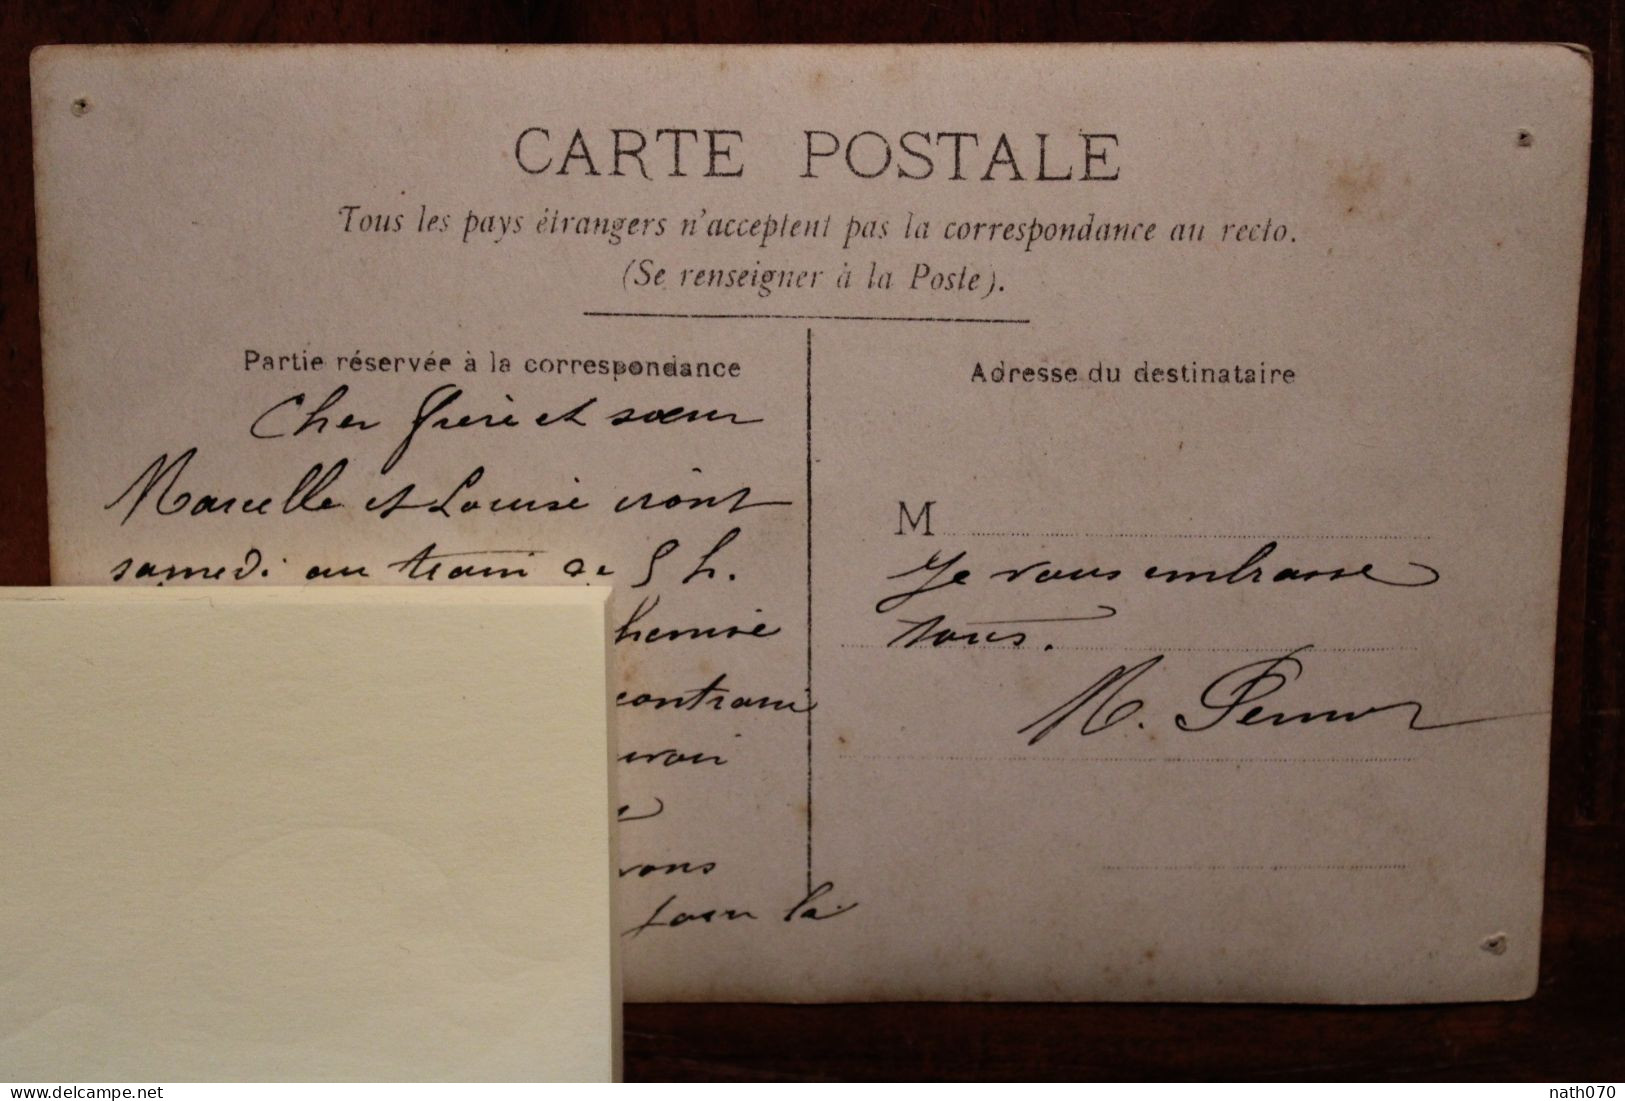 CARTE POSTALE
Tous les pays étrangers n'acceptent pas la correspondance au recto.
(Se renseigner à la Poste).
Partie réservée à la correspondance
Cher frère et sœur
Marcelle et Louise iront
samedi au train de 5 h.
contrair
pour la
Adresse du destinataire
M
Je vous embrasse
tous.
M.
nath070